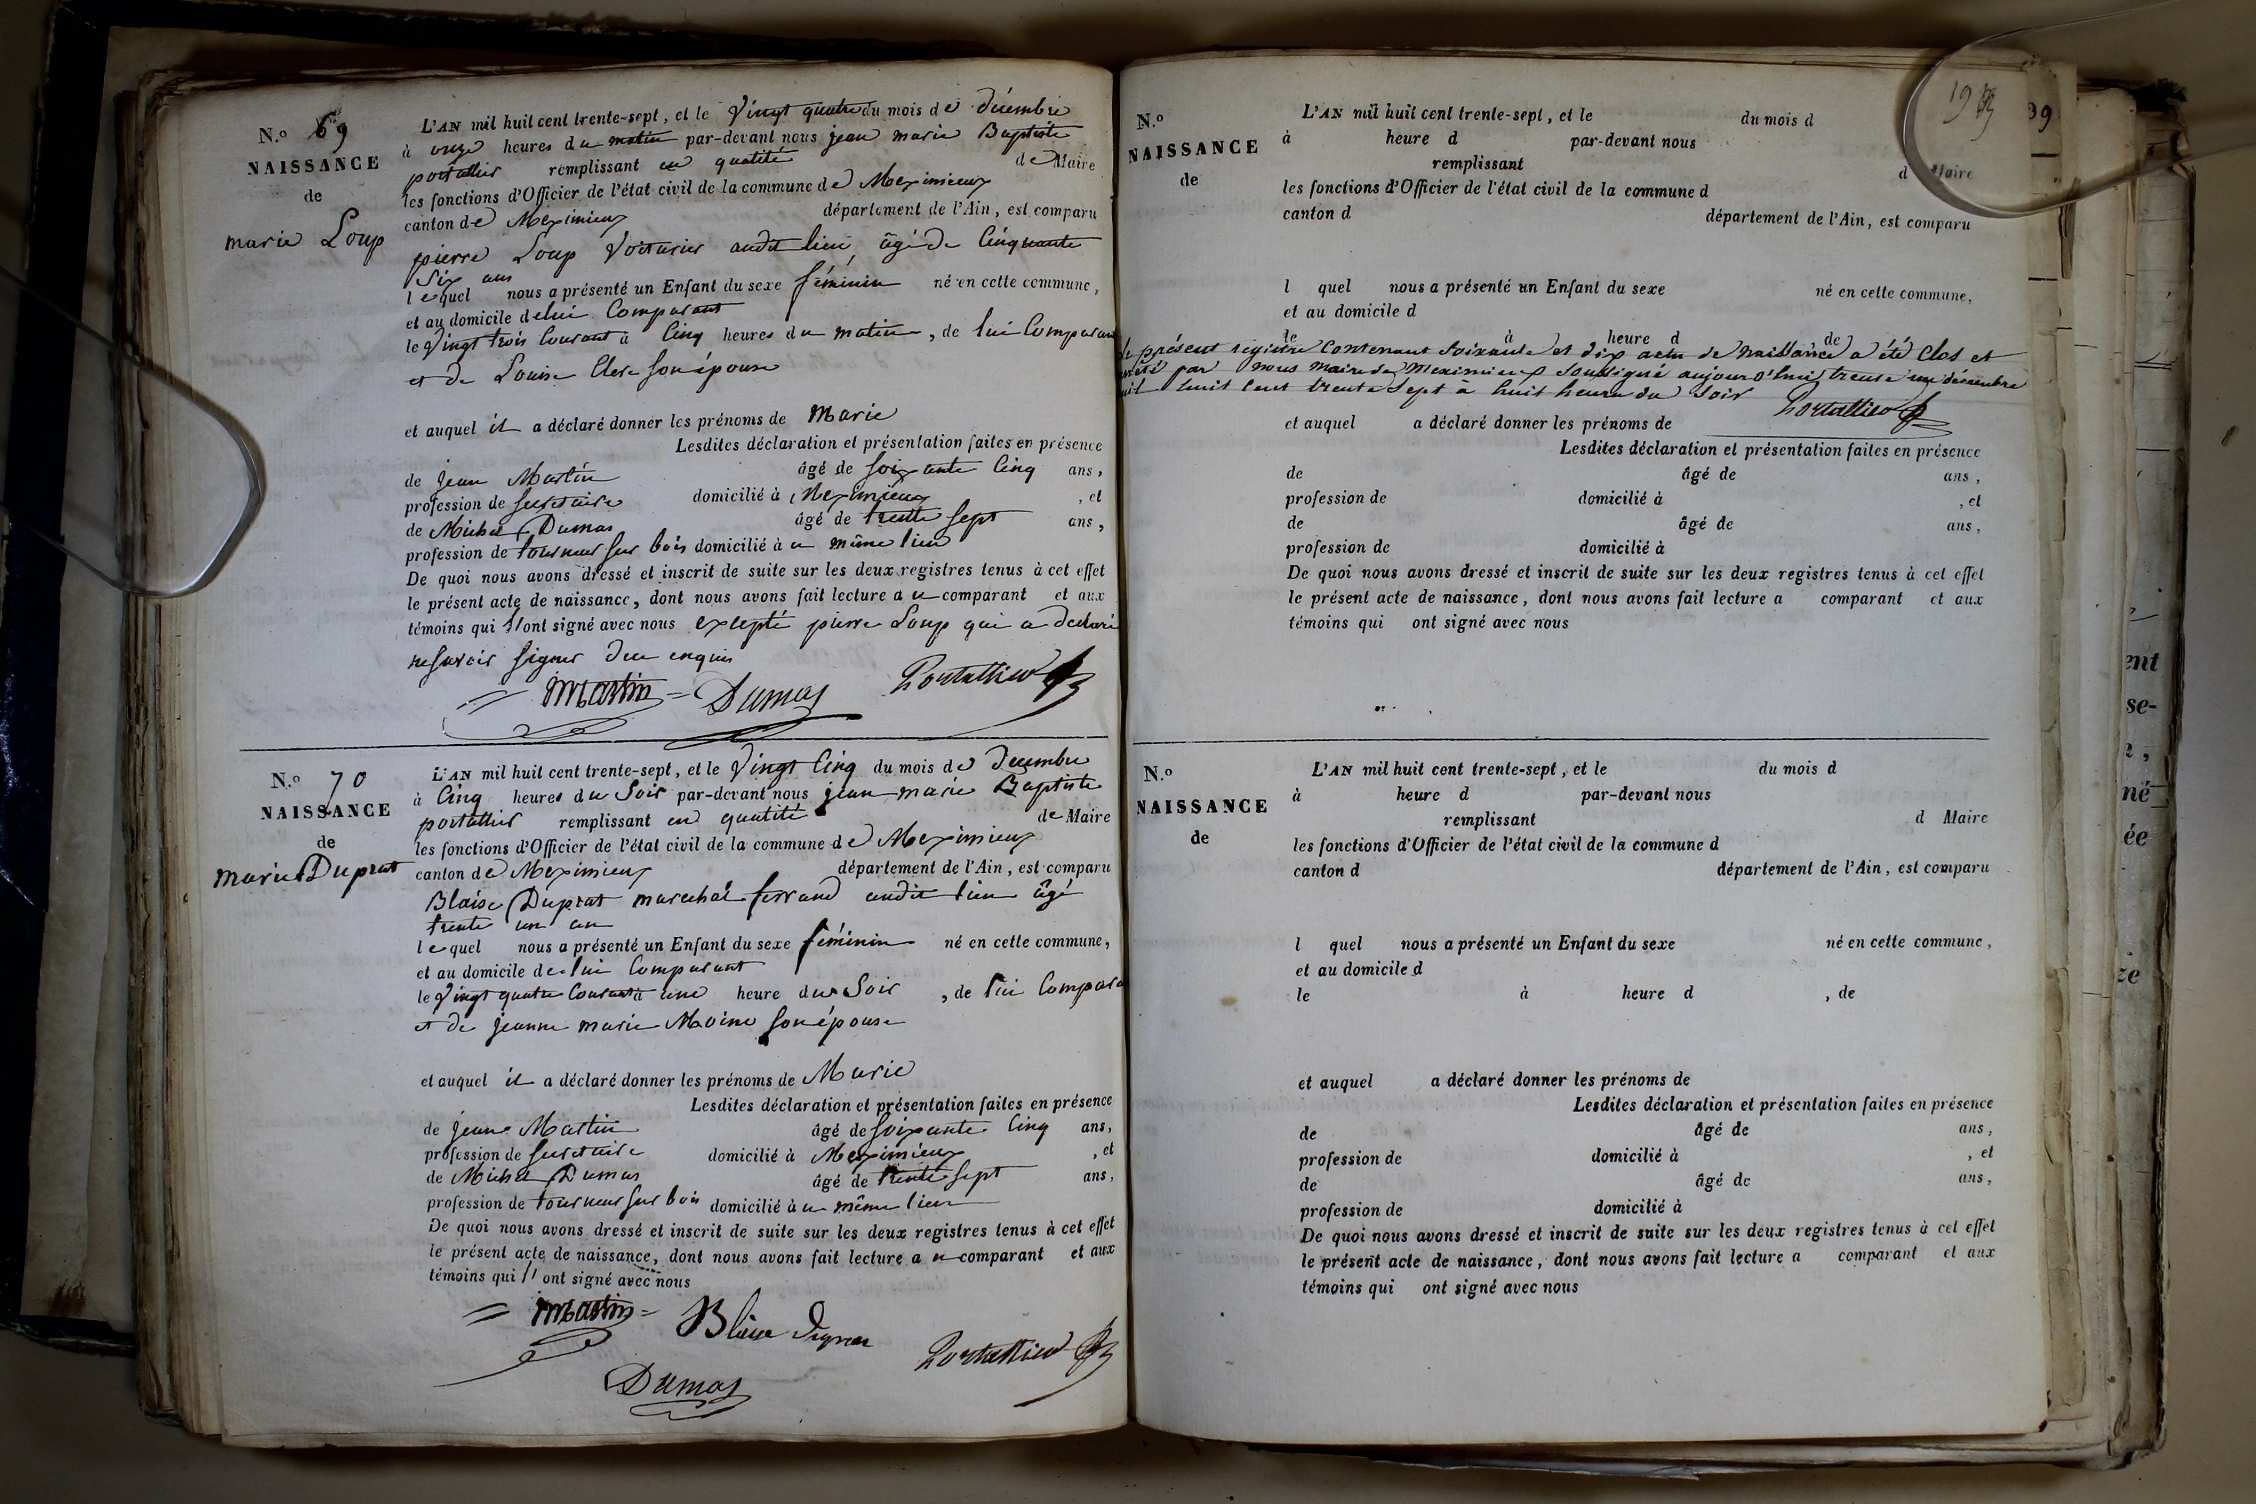 N.o 69
NAISSANCE
de
marie Loup
L'AN mil huit cent trente-sept, et le Vingt quatre du mois de décembre
à onze heures du matin par-devant nous jean marie Baptiste
portallier remplissant en qualité de Maire
les fonctions d'Officier de l'état civil de la commune de Meximieux
canton de Meximieux département de l'Ain, est comparu
pierre Loup Voiturier audit lieu âgé de Cinquante
Six ans
lequel nous a présenté un Enfant du sexe féminin né en cette commune,
et au domicile de lui Comparant
le Vingt trois Courant à Cinq heures du matin, de lui Comparant
et de Louise Clerc son épouse
et auquel il a déclaré donner les prénoms de Marie
Lesdites déclaration et présentation faites en présence
de jean Martin âgé de soixante Cinq ans,
profession de secretaire domicilié à Meximieux, et
de Michel Dumas âgé de trente sept ans,
profession de tourneur sur bois domicilié à u même lieu
De quoi nous avons dressé et inscrit de suite sur les deux registres tenus à cet effet
le présent acte de naissance, dont nous avons fait lecture a u comparant et aux
témoins qui l'ont signé avec nous excepté pierre Loup qui a declaré
ne savoir signer de ce enquis
Martin Dumas Portallier
N.o 70
NAISSANCE
de
marie Duprat
L'AN mil huit cent trente-sept, et le Vingt Cinq du mois de decembre
à Cinq heures du Soir par-devant nous jean marie Baptiste
portallier remplissant en qualité de Maire
les fonctions d'Officier de l'état civil de la commune de Meximieux
canton de Meximieux département de l'Ain, est comparu
Blaise Duprat marechal ferrand audit lieu âgé
trente un an
lequel nous a présenté un Enfant du sexe féminin né en cette commune,
et au domicile de lui Comparant
le Vingt quatre Courant à une heure du Soir, de lui Compara
et de jeanne marie Moine son épouse
et auquel il a déclaré donner les prénoms de Marie
Lesdites déclaration et présentation faites en présence
de jean Martin âgé de soixante Cinq ans,
profession de secretaire domicilié à Meximieux, et
de Michel Dumas âgé de trente sept ans,
profession de tourneur sur bois domicilié à u même lieu
De quoi nous avons dressé et inscrit de suite sur les deux registres tenus à cet effet
le présent acte de naissance, dont nous avons fait lecture a u comparant et aux
témoins qui l'ont signé avec nous
Martin Blaise
Dumas Portallier
N.o
NAISSANCE
de
L'AN mil huit cent trente-sept, et le du mois d
à heure d par-devant nous
remplissant d Maire
les fonctions d'Officier de l'état civil de la commune d
canton d département de l'Ain, est comparu
l quel nous a présenté un Enfant du sexe né en cette commune,
et au domicile d
le à heure d de
le présent registre Contenant soixante et dix actes de naissance a été Clos et
arrêté par nous maire de Meximieux soussigné aujourd'hui trente un décembre
mil huit cent trente sept à huit heures du Soir Portallier
et auquel a déclaré donner les prénoms de
Lesdites déclaration et présentation faites en présence
de âgé de ans,
profession de domicilié à, et
de âgé de ans,
profession de domicilié à
De quoi nous avons dressé et inscrit de suite sur les deux registres tenus à cet effet
le présent acte de naissance, dont nous avons fait lecture a comparant et aux
témoins qui ont signé avec nous
N.o
NAISSANCE
de
L'AN mil huit cent trente-sept, et le du mois d
à heure d par-devant nous
remplissant d Maire
les fonctions d'Officier de l'état civil de la commune d
canton d département de l'Ain, est comparu
l quel nous a présenté un Enfant du sexe né en cette commune,
et au domicile d
le à heure d, de
et auquel a déclaré donner les prénoms de
Lesdites déclaration et présentation faites en présence
de âgé de ans,
profession de domicilié à, et
de âgé de ans,
profession de domicilié à
De quoi nous avons dressé et inscrit de suite sur les deux registres tenus à cet effet
le présent acte de naissance, dont nous avons fait lecture a comparant et aux
témoins qui ont signé avec nous